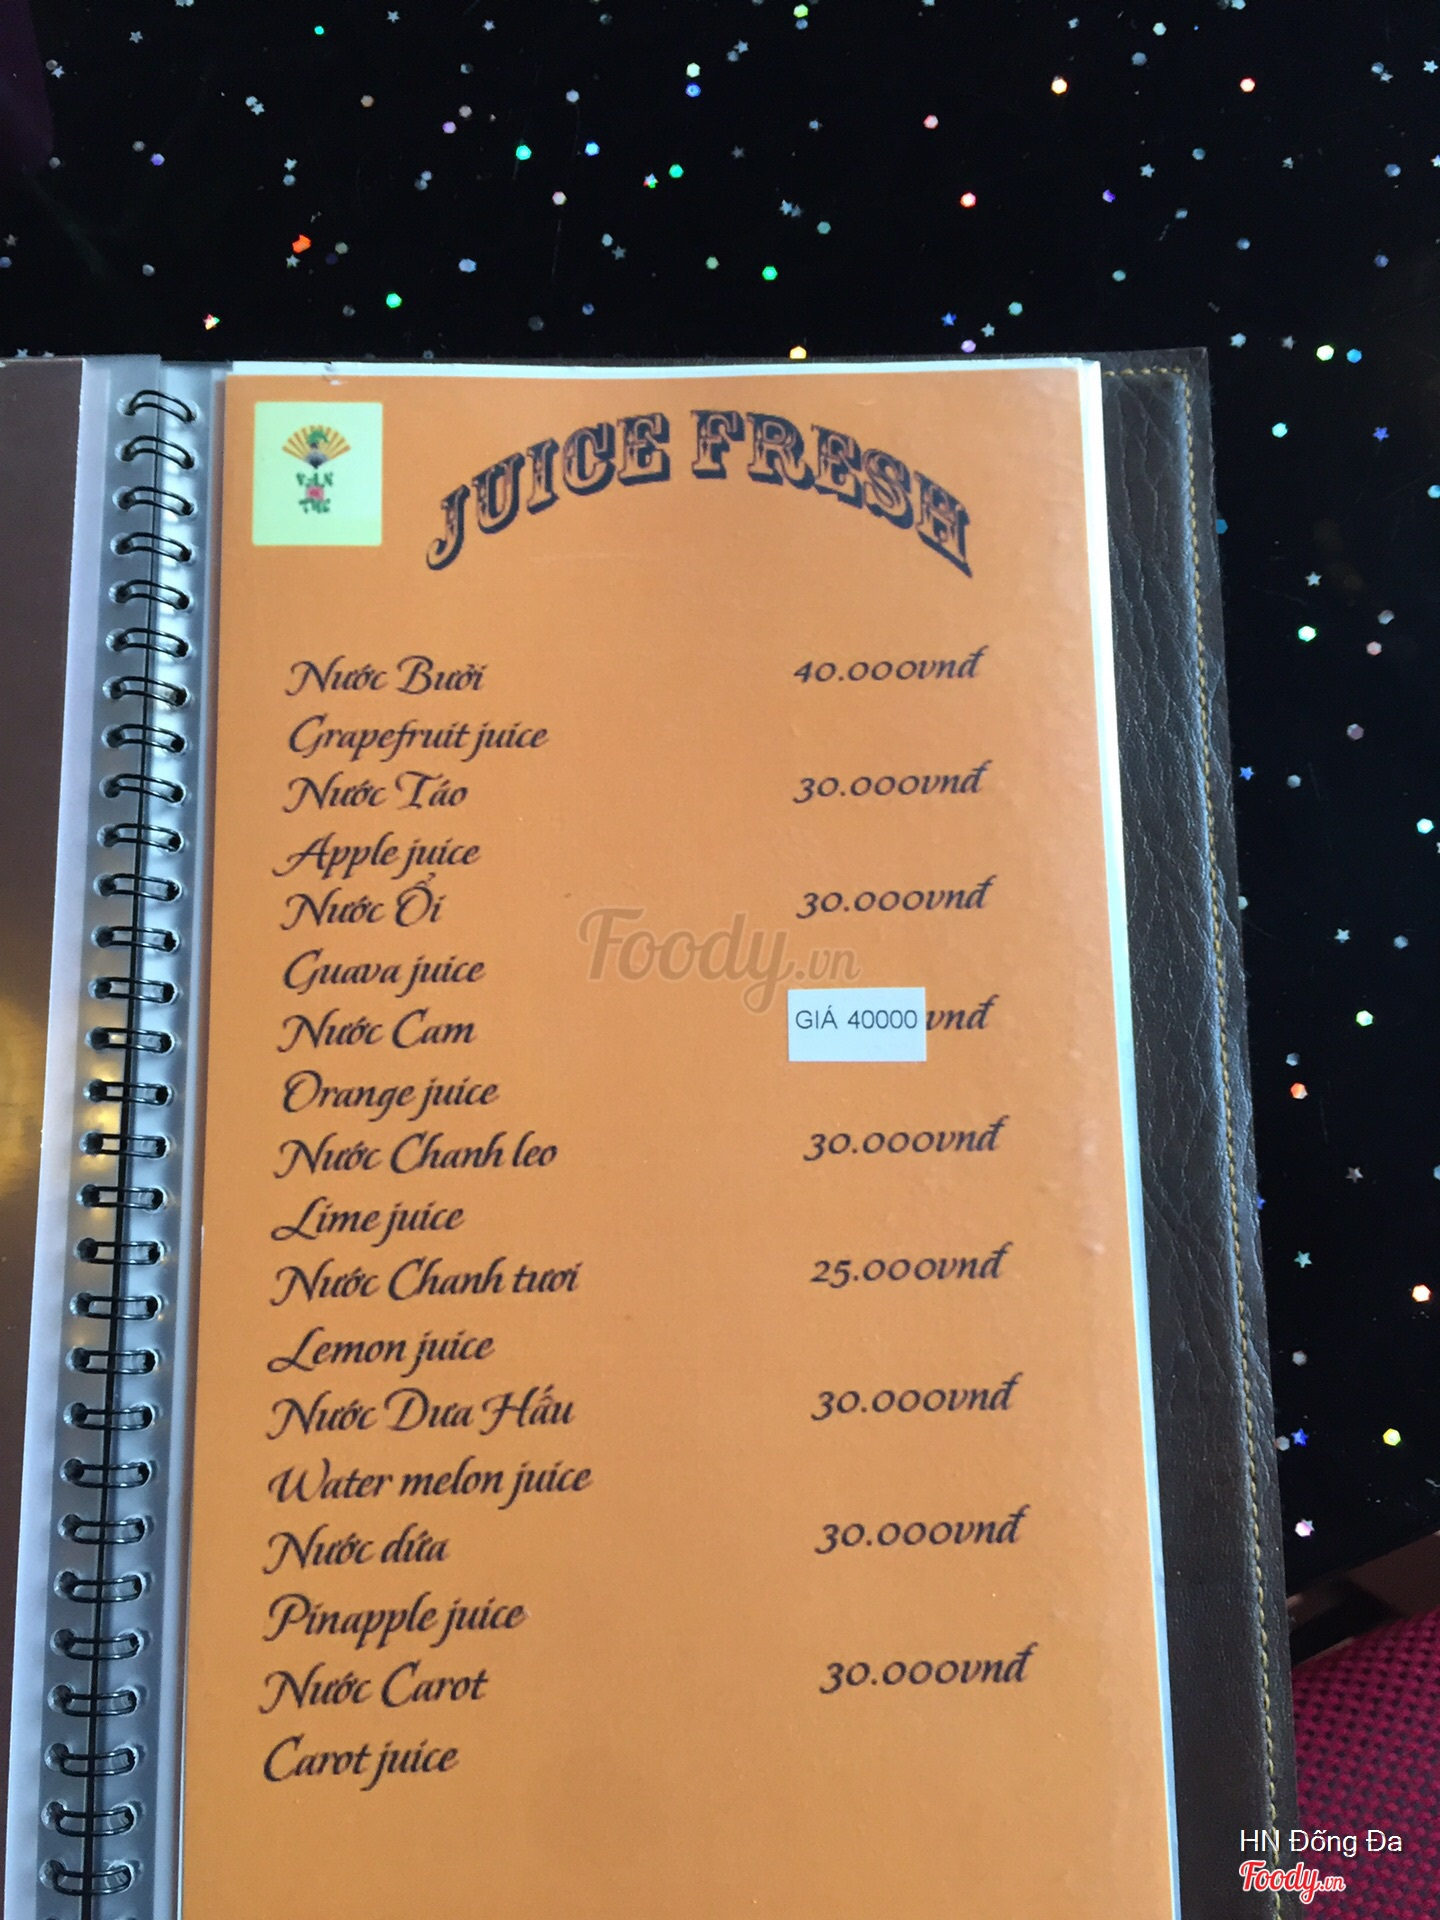 VẠN
TUẾ
JUICE FRESH
Nước Bưởi 40.000vnđ
Grapefruit juice
Nước Táo 30.000vnđ
Apple juice
Nước Ổi 30.000vnđ
Guava juice
Nước Cam GIÁ 40000 vnđ
Orange juice
Nước Chanh leo 30.000vnđ
Lime juice
Nước Chanh tươi 25.000vnđ
Lemon juice
Nước Dưa Hấu 30.000vnđ
Water melon juice
Nước dứa 30.000vnđ
Pinapple juice
Nước Carot 30.000vnđ
Carot juice
Foody.vn
HN Đống Đa
Foody.vn